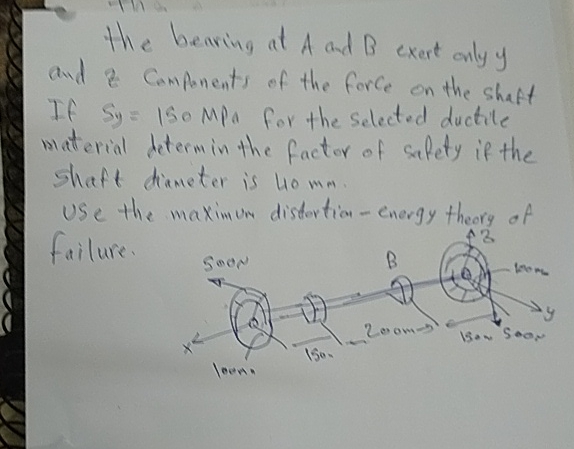 the bearing at A and B exert only y
and z Components of the force on the shaft
If Sy = 150 MPa for the selected ductile
material determin the factor of safety if the
shaft diameter is 40 mm.
Use the maximum distortion-energy theory of
failure.
500N
B
z
100mm
y
200mm
150m
500N
x
150m
100mm